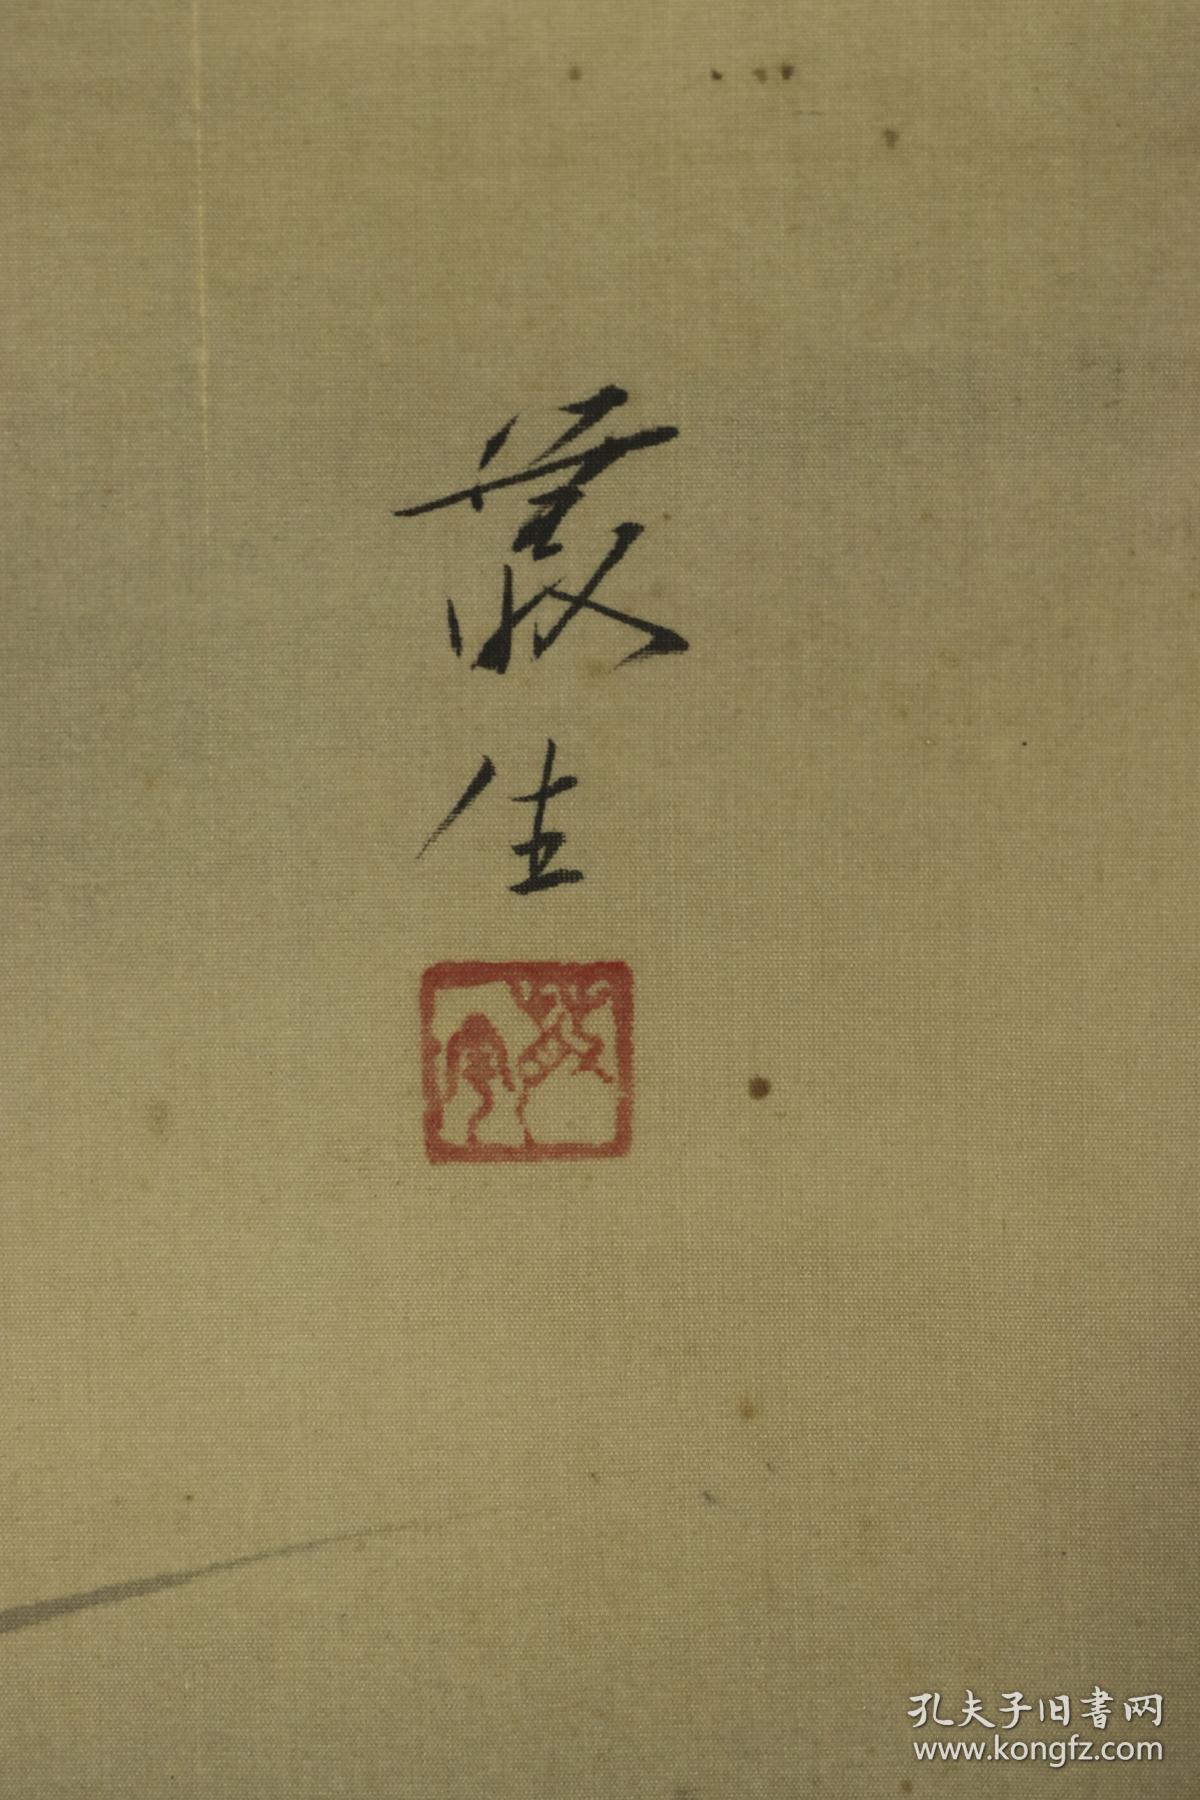 叢生
孔夫子旧書网
www.kongfz.com